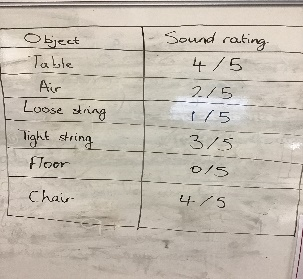 Object Sound rating.
Table 4/5
Air 2/5
Loose string 1/5
Tight string 3/5
Floor 0/5
Chair 4/5